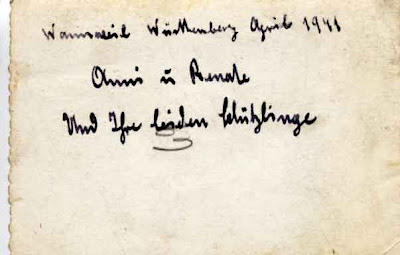 Wannweil Würtenberg April 1941
Anni u Renate
Und Ihre beiden Schützlinge